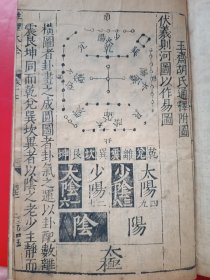 玉齋胡氏通釋附圖
伏羲則河圖以作易圖
乾兌離震巽坎艮坤
太陽
少陰
少陽
太陰
陽
陰
太極
橫圖者卦畫之成圓圖者卦氣之運以卦配數離
震艮坤同而乾兌巽坎異者以陰之老少主靜而